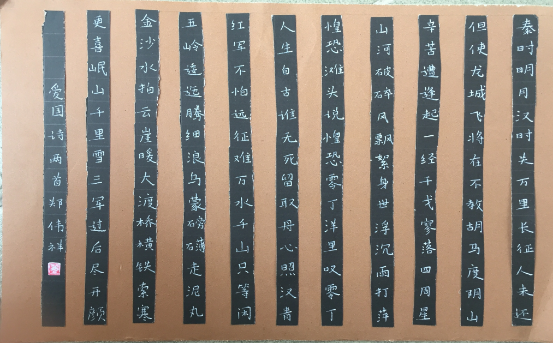 秦时明月汉时关万里长征人未还
但使龙城飞将在不教胡马度阴山
辛苦遭逢起一经干戈寥落四周星
山河破碎风飘絮身世浮沉雨打萍
惶恐滩头说惶恐零丁洋里叹零丁
人生自古谁无死留取丹心照汗青
红军不怕远征难万水千山只等闲
五岭逶迤腾细浪乌蒙磅礴走泥丸
金沙水拍云崖暖大渡桥横铁索寒
更喜岷山千里雪三军过后尽开颜
爱国诗两首郑伟祥